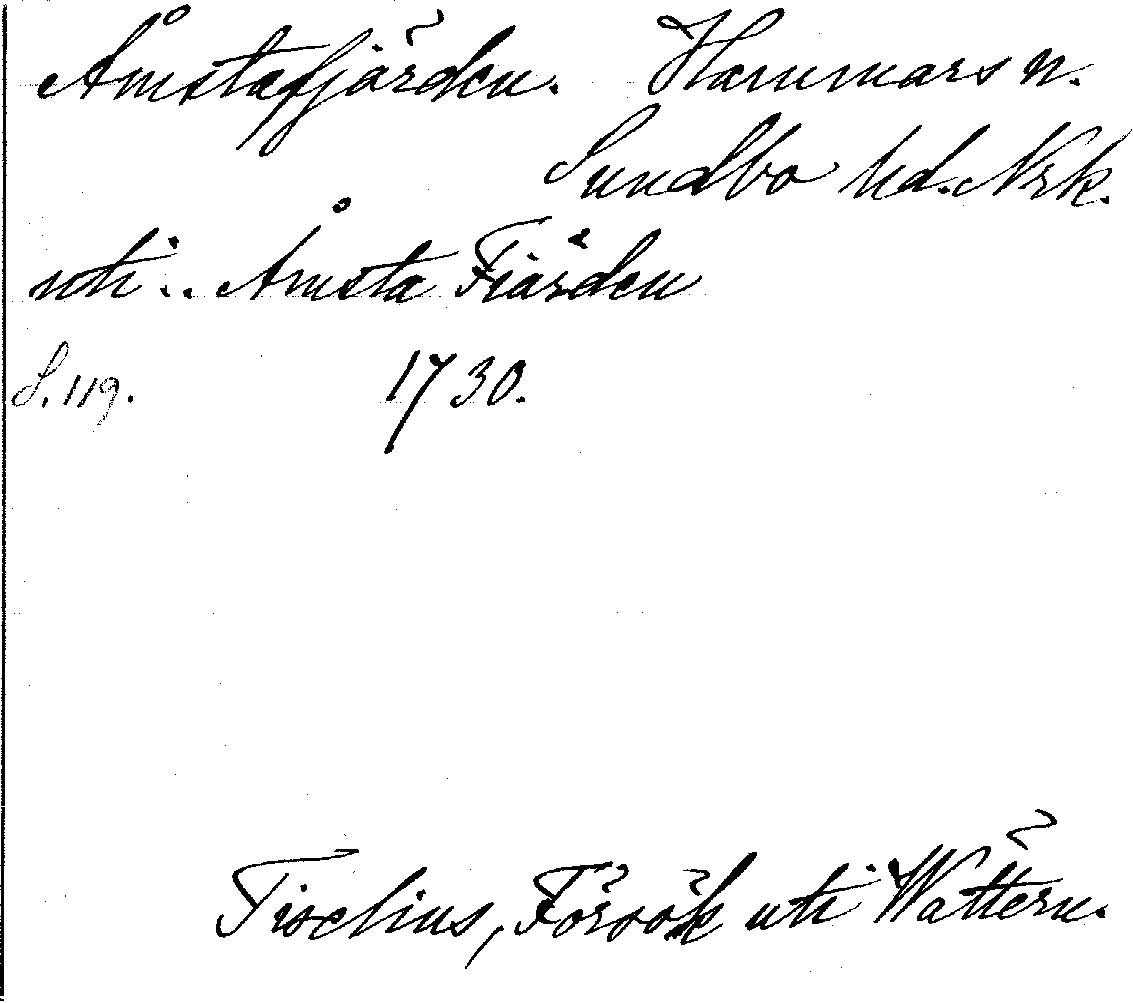 Åmstafjärden. Hammars n.
Sundbo hd. Nrk.
uti .. Åmsta Fiärden
S. 119. 1730.
Tiselius, Försök uti Wättern.